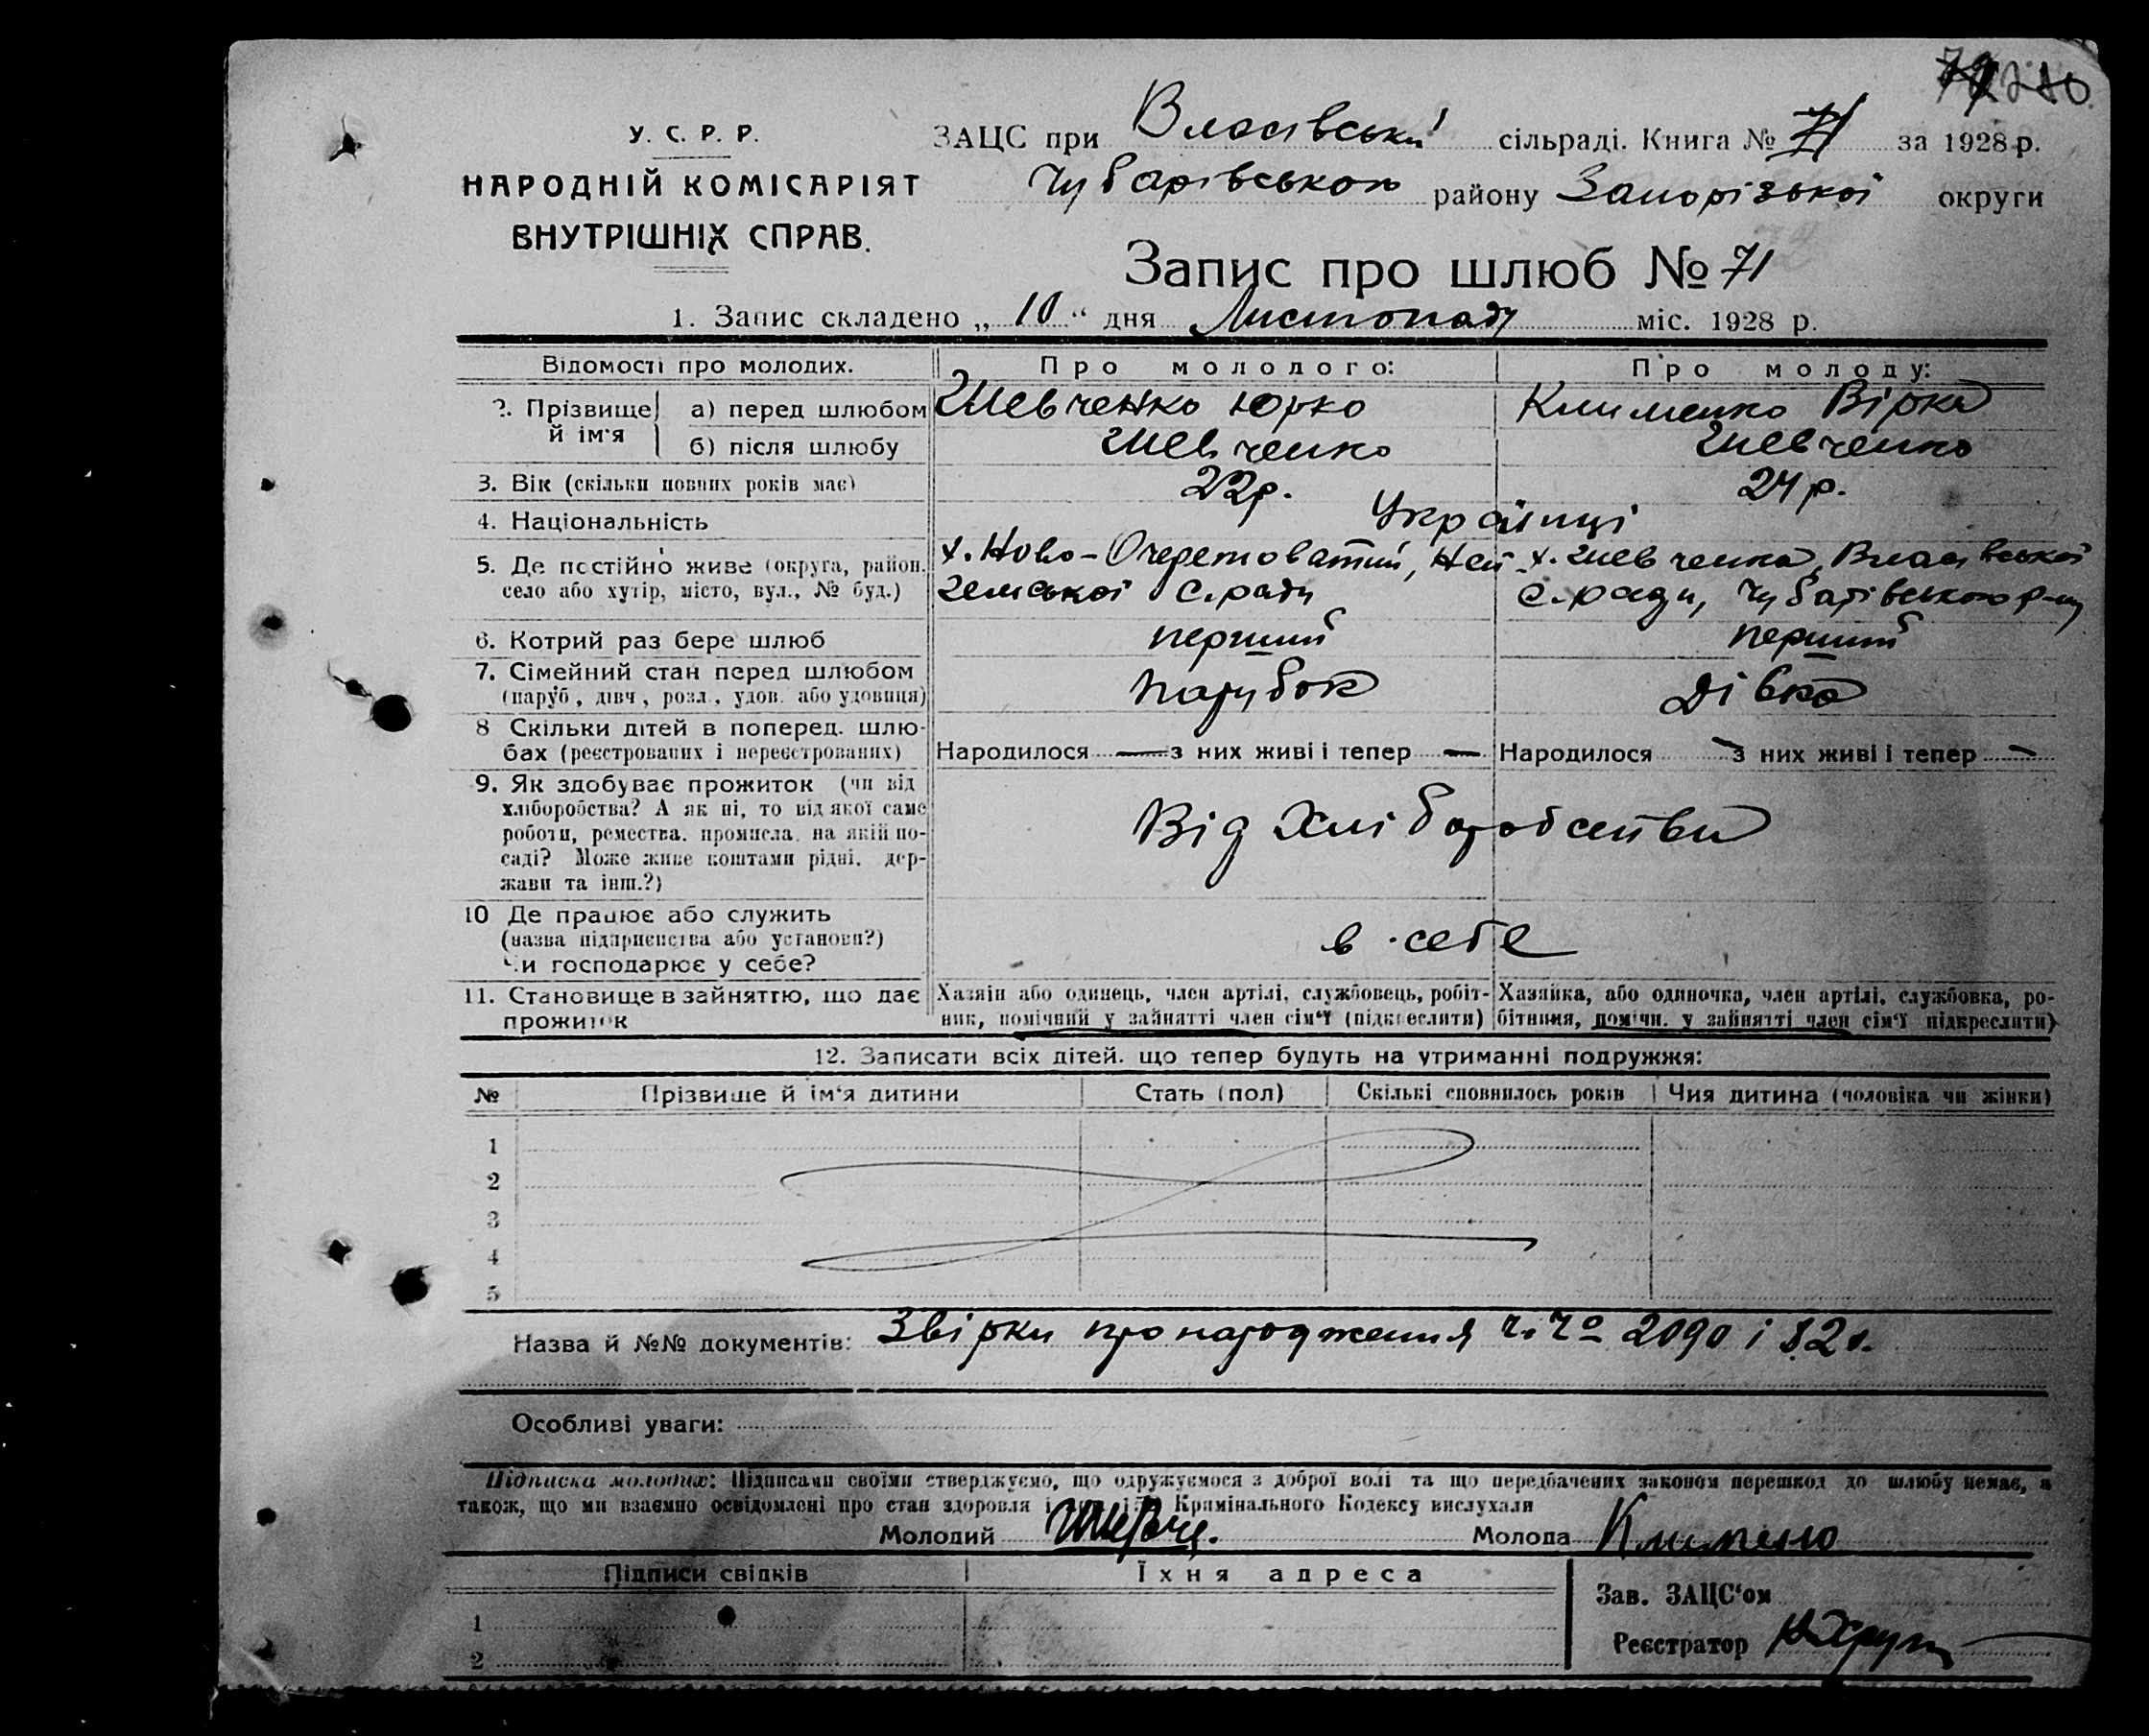 У. С. Р. Р.
НАРОДНІЙ КОМІСАРІЯТ
ВНУТРІШНІХ СПРАВ.
ЗАЦС при Власівській сільраді. Книга № 71 за 1928 р.
Чубарівського району Запорізької округи
Запис про шлюб № 71
1. Запис складено „ 10 “ дня Листопаду міс. 1928 р.
Відомості про молодих. Про молодого: Про молоду:
2. Прізвище й ім'я а) перед шлюбом Шевченко Юрко Клименко Вірка
б) після шлюбу Шевченко Шевченко
3. Вік (скільки повних років має) 22 р. 24 р.
4. Національність Українці
5. Де постійно живе (округа, район, х. Ново-Очеретоватий, х. Шевченка, Власівської
село або хутір, місто, вул., № буд.) с.ради с.ради, Чубарівського р-ну
6. Котрий раз бере шлюб перший перший
7. Сімейний стан перед шлюбом Парубок Дівка
(паруб, дівч, розл., удов. або удовиця)
8 Скільки дітей в поперед. шлю-
бах (реєстрованих і нереєстрованих) Народилося — з них живі і тепер — Народилося — з них живі і тепер —
9. Як здобуває прожиток (чи від
хліборобства? А як ні, то від якої саме
роботи, ремества, промисла, на якій по- Від Хліборобства
саді? Може живе коштами рідні, дер-
жави та інш.?)
10 Де працює або служить
(назва підприємства або установи?) в себе
Чи господарює у себе?
11. Становище в зайняттю, що дає Хазяїн або одинець, член артілі, службовець, робіт- Хазяйка, або одиночка, член артілі, службовка, ро-
прожиток ник, помічний у зайнятті член сім'ї (підкреслити) бітниця, помічн. у зайнятті член сім'ї підкреслити)
12. Записати всіх дітей, що тепер будуть на утриманні подружжя:
№ Прізвище й ім'я дитини Стать (пол) Скількі сповнилось років Чия дитина (чоловіка чи жінки)
1
2
3
4
5
Назва й №№ документів: Звірки про народження 2090 і 820.
Особливі уваги:
Підписка молодих: Підписами своїми стверджуємо, що одружуємося з доброї волі та що передбачених законом перешкод до шлюбу немає, а
також, що ми взаємно освідомлені про стан здоровля і Кримінального Кодексу вислухали
Молодий Шевче. Молода Климено
Підписи свідків Їхня адреса
Зав. ЗАЦС'ом
1
Реєстратор
2